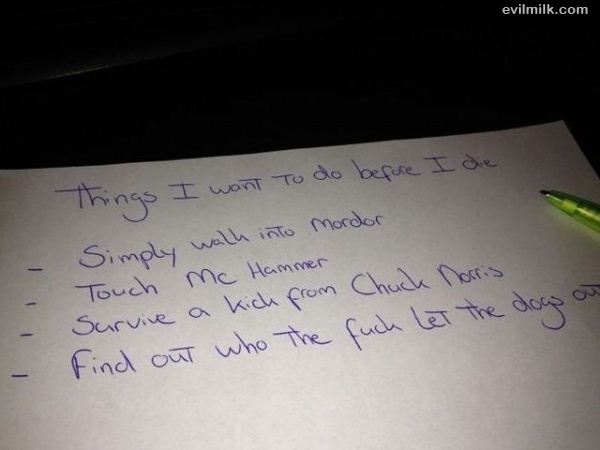 evilmilk.com
Things I want to do before I die
- Simply walk into Mordor
- Touch MC Hammer
- Survive a kick from Chuck Norris
- Find out who the fuck let the dogs out